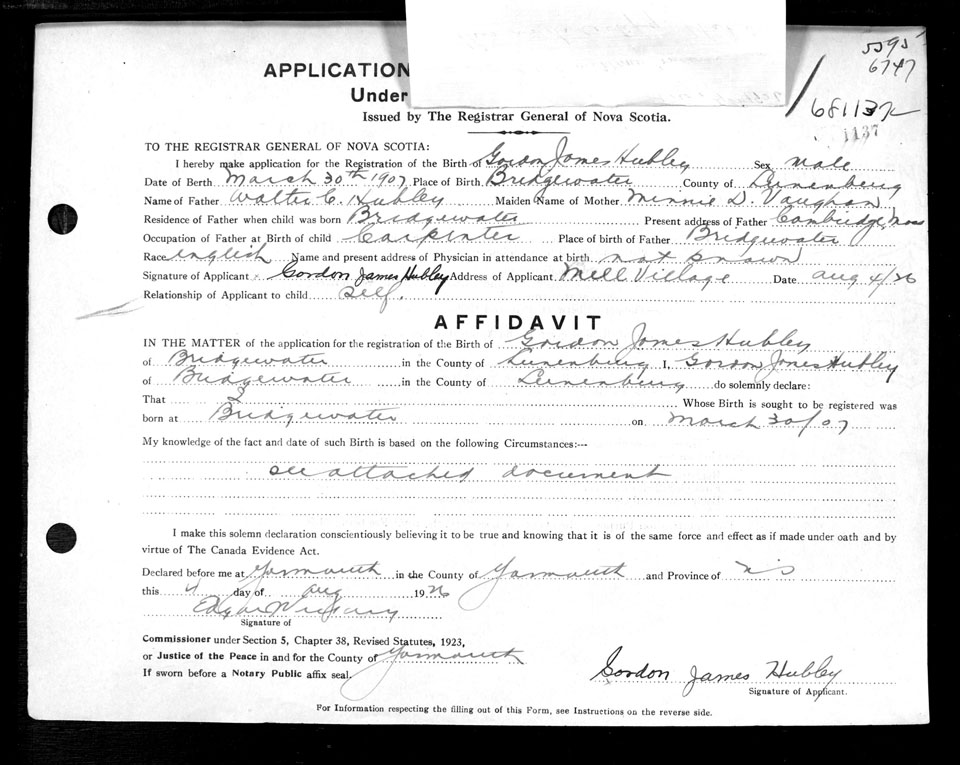 5595
6747
APPLICATION
Under
68113½
1137
Issued by The Registrar General of Nova Scotia.
TO THE REGISTRAR GENERAL OF NOVA SCOTIA:
I hereby make application for the Registration of the Birth of Gordon James Hubley Sex Male
Date of Berth March 30th 1907 Place of Birth Bridgewater County of Lunenburg
Name of Father Walter C. Hubley Maiden Name of Mother Minnie D. Vaughan
Residence of Father when child was born Bridgewater Present address of Father Cambridge, Mass
Occupation of Father at Birth of child Carpenter Place of birth of Father Bridgewater
Race English Name and present address of Physician in attendance at birth. not known
Signature of Applicant x Gordon James Hubley Address of Applicant Mill Village Date Aug 4/26
Relationship of Applicant to child self.
AFFIDAVIT
IN THE MATTER of the application for the registration of the Birth of Gordon James Hubley
of Bridgewater in the County of Lunenburg I, Gordon James Hubley
of Bridgewater in the County of Lunenburg do solemnly declare:
That I Whose Birth is sought to be registered was
born at Bridgewater on March 30/07
My knowledge of the fact and date of such Birth is based on the following Circumstances:—
see attached document
I make this solemn declaration conscientiously believing it to be true and knowing that it is of the same force and effect as if made under oath and by
virtue of The Canada Evidence Act.
Declared before me at Yarmouth in the County of Yarmouth and Province of NS
this 4 day of Aug 1926
Edgar
Signature of
Commissioner under Section 5, Chapter 38, Revised Statutes, 1923,
or Justice of the Peace in and for the County of Yarmouth
If sworn before a Notary Public affix seal.
Gordon James Hubley
Signature of Applicant.
For Information respecting the filling out of this Form, see Instructions on the reverse side.